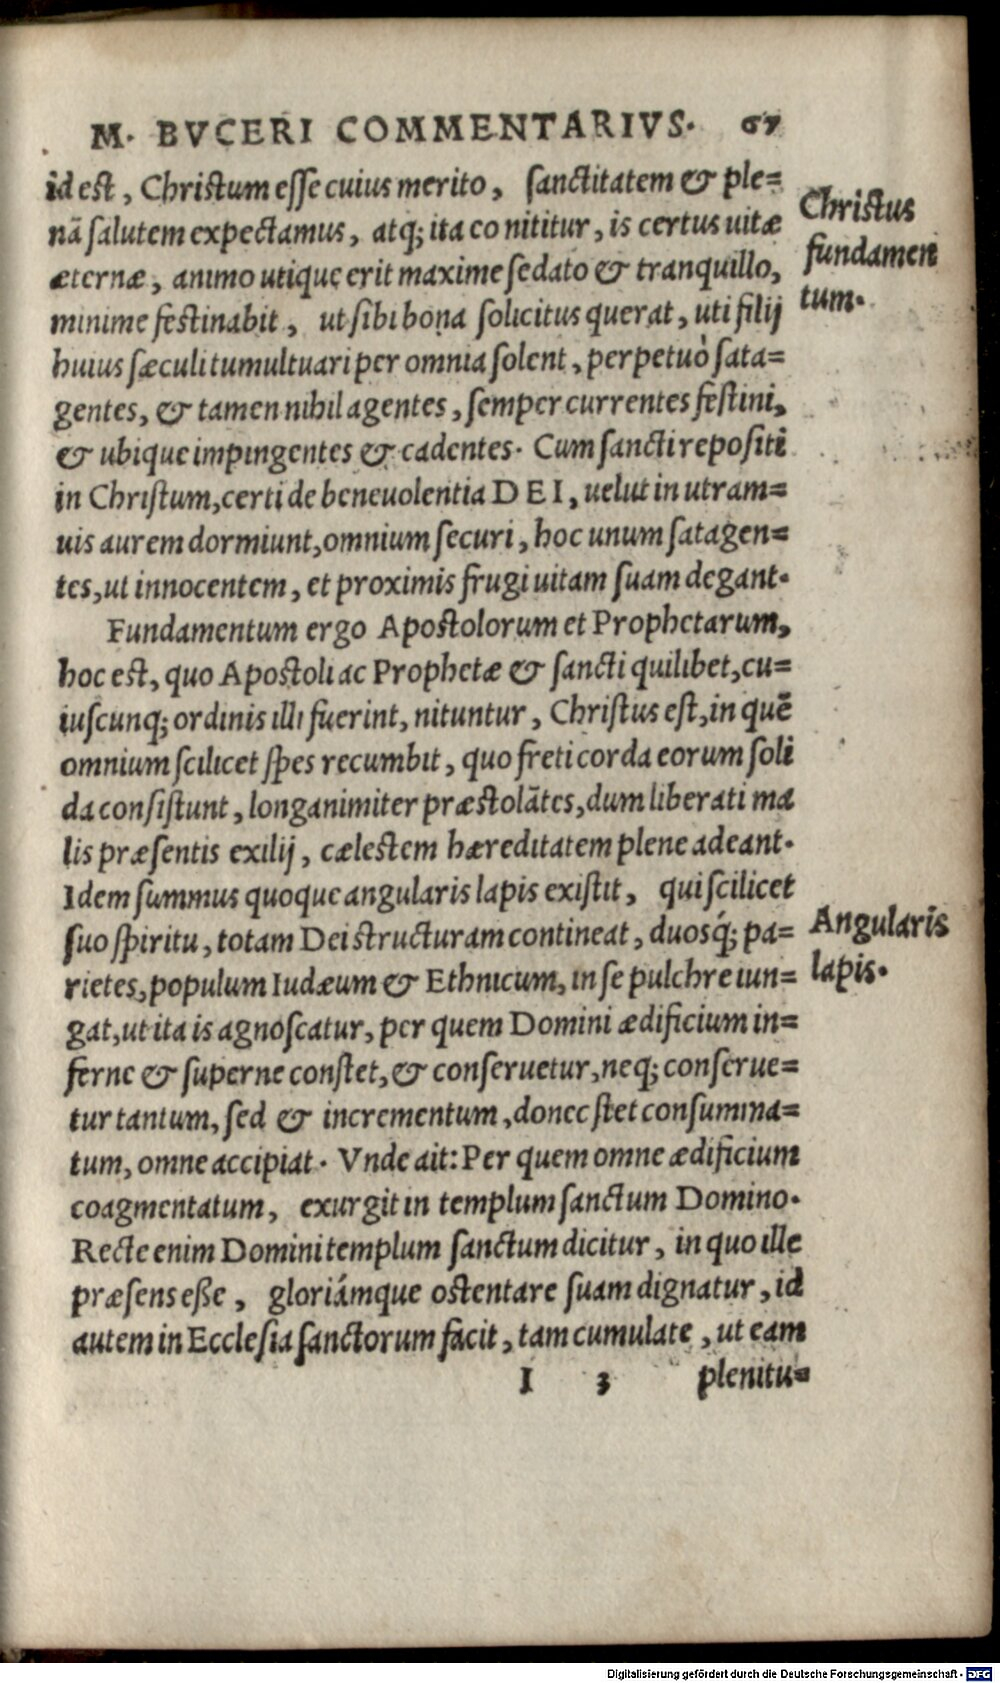 M. BVCERI COMMENTARIVS. 67
id est, Christum esse cuius merito, sanctitatem & ple=
nā salutem expectamus, atq; ita co nititur, is certus uitæ
æternæ, animo utique erit maxime sedato & tranquillo,
minime festinabit, ut sibi bona solicitus querat, uti filij
huius sæculi tumultuari per omnia solent, perpetuò sata=
gentes, & tamen nihil agentes, semper currentes festini,
& ubique impingentes & cadentes. Cum sancti repositi
in Christum, certi de beneuolentia DEI, uelut in utram=
uis aurem dormiunt, omnium securi, hoc unum satagen=
tes, ut innocentem, et proximis frugi uitam suam degant.
Fundamentum ergo Apostolorum et Prophetarum,
hoc est, quo Apostoli ac Prophetæ & sancti quilibet, cu=
iuscunq; ordinis illi fuerint, nituntur, Christus est, in quē
omnium scilicet spes recumbit, quo freti corda eorum soli
da consistunt, longanimiter præstolātes, dum liberati ma
lis præsentis exilij, cælestem hæreditatem plene adeant.
Idem summus quoque angularis lapis existit, qui scilicet
suo spiritu, totam Dei structuram contineat, duosq́; pa=
rietes, populum Iudæum & Ethnicum, in se pulchre iun=
gat, ut ita is agnoscatur, per quem Domini ædificium in=
ferne & superne constet, & conseruetur, neq; conserue=
tur tantum, sed & incrementum, donec stet consumma=
tum, omne accipiat. Vnde ait: Per quem omne ædificium
coagmentatum, exurgit in templum sanctum Domino.
Recte enim Domini templum sanctum dicitur, in quo ille
præsens eße, gloriámque ostentare suam dignatur, id
autem in Ecclesia sanctorum facit, tam cumulate, ut eam
I 3 plenitu=
Christus
fundamen
tum.
Angularis
lapis.
Digitalisierung gefördert durch die Deutsche Forschungsgemeinschaft - DFG